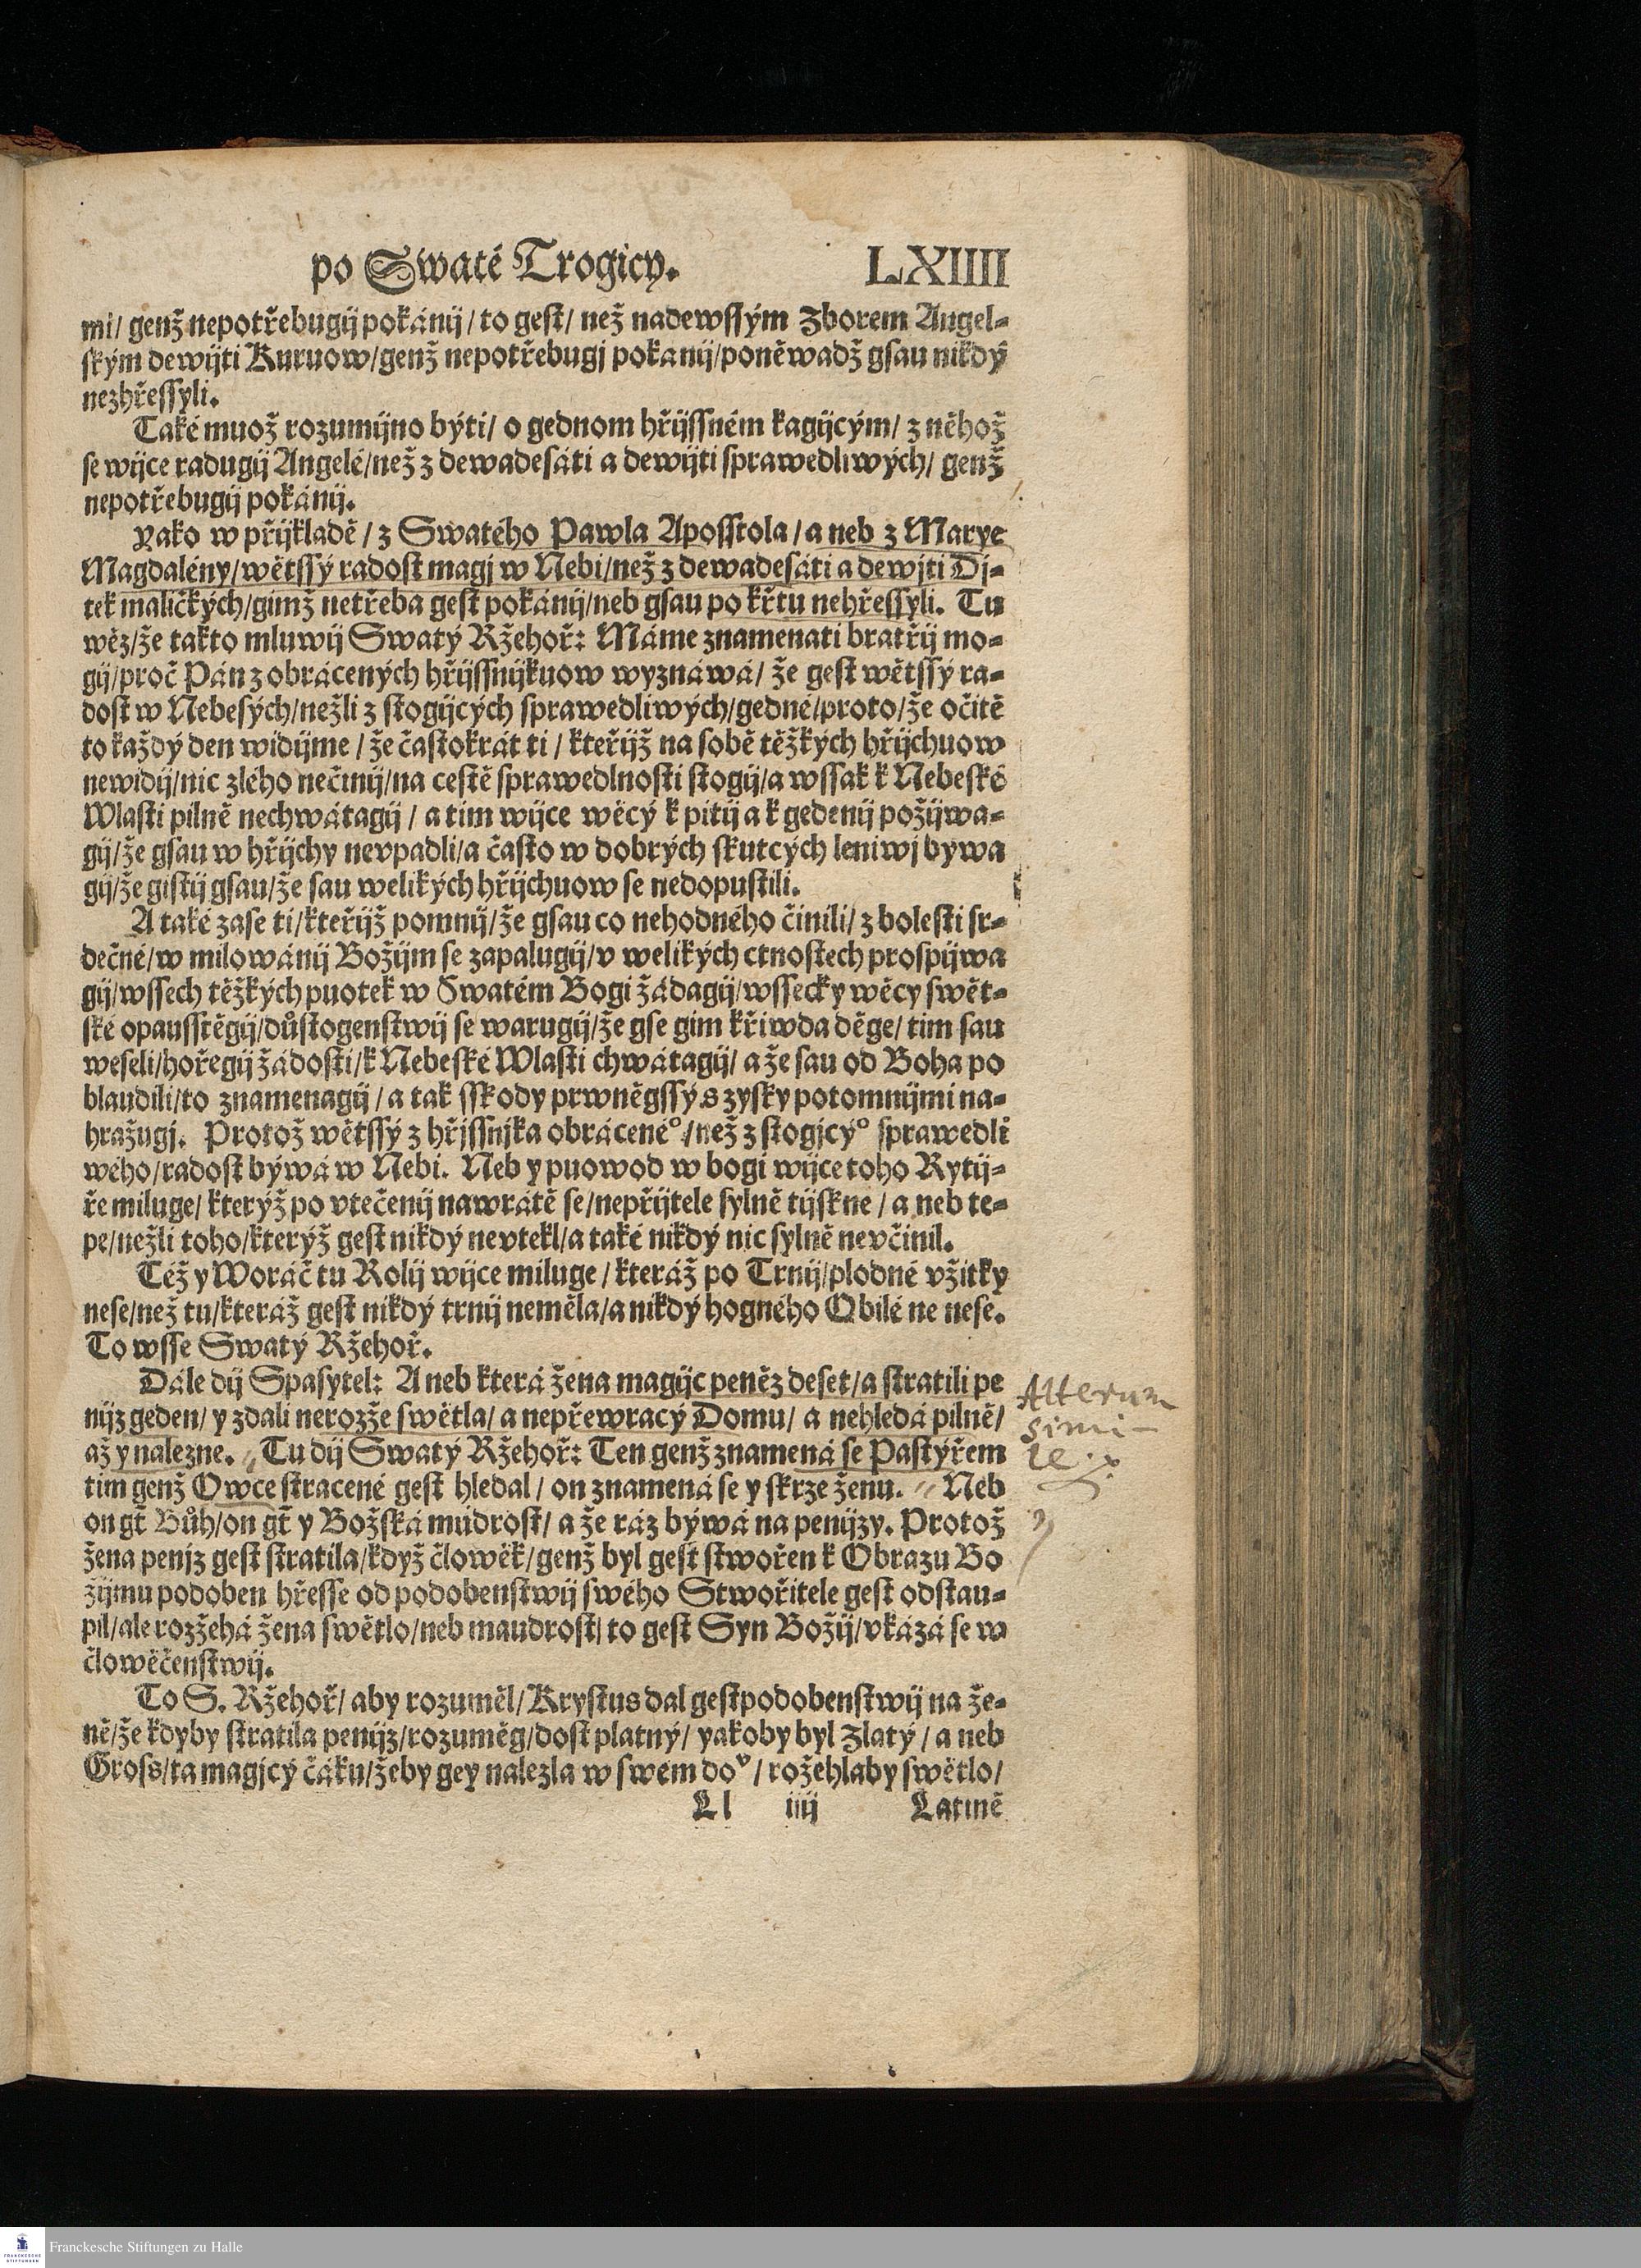 po Swaté Trogicy. LXIIII
mi/ genž nepotřebugij pokánij/ to gest/ než nadewssým Zborem Angel-
ským dewijti Kuruow/genž nepotřebugj pokanij/poněwadž gsau nikdý
nezhřessyli.
Také muož rozumijno býti/ o gednom hřijssném kagijcým/ z něhož
se wijce radugij Angelé/než z dewadesáti a dewijti sprawedliwých/ genž
nepotřebugij pokánij.
Yako w přijkladě/ z Swatého Pawla Aposstola/ a neb z Marye
Magdalény/wětssý radost magj w Nebi/než z dewadesáti a dewjti Dj-
tek maličkých/gimž netřeba gest pokánij/neb gsau po křtu nehřessyli. Tu
wěz/že takto mluwij Swatý Ržehoř: Máme znamenati bratřij mo-
gij/proč Pán z obrácených hřijssnijkuow wyznáwá/ že gest wětssý ra-
dost w Nebesých/nežli z stogijcých sprawedliwých/gedné/proto/že očitě
to každý den widijme/ že častokrát ti/ kteřijž na sobě těžkých hřijchuow
newidij/nic zlého nečinij/na cestě sprawedlnosti stogij/a wssak k Nebeské
Wlasti pilně nechwátagij/ a tim wijce wěcý k pitij a k gedenij požijwa-
gij/že gsau w hřijchy nevpadli/a často w dobrých skutcých leniwj bywa
gij/že gistij gsau/že sau welikých hřijchuow se nedopustili.
A také zase ti/kteřijž pomnij/že gsau co nehodného činili/ z bolesti sr-
dečné/w milowánij Božijm se zapalugij/v welikých ctnostech prospijwa
gij/wssech těžkých puotek w Swatém Bogi žádagij/wssecky wěcy swět-
ské opausstěgij/důstogenstwij se warugij/že gse gim křiwda děge/ tim sau
weseli/hořegij žádosti/k Nebeské Wlasti chwátagij/ a že sau od Boha po
blaudili/to znamenagij/ a tak sskody prwněgssý s zysky potomnijmi na-
hražugj. Protož wětssý z hřjssnjka obrácené°/než z stogjcý° sprawedli
wého/radost býwá w Nebi. Neb y puowod w bogi wijce toho Rytij-
ře miluge/ kterýž po vtečenij nawrátě se/nepřijtele sylně tijskne/ a neb te-
pe/nežli toho/kterýž gest nikdý nevtekl/a také nikdý nic sylně nevčinil.
Též y Woráč tu Rolij wijce miluge/ kteráž po Trnij/plodné vžitky
nese/než tu/kteráž gest nikdý trnij neměla/a nikdý hogného Obilé ne nese.
To wsse Swatý Ržehoř.
Dále dij Spasytel: A neb která žena magijc peněz deset/a stratili pe
nijz geden/ y zdali nerozže swětla/ a nepřewracý Domu/ a nehledá pilně/
až y nalezne. Tu dij Swatý Ržehoř: Ten genž znamená se Pastýřem
tim genž Owce stracené gest hledal/ on znamená se y skrze ženu. Neb
on gt̄ Bůh/on gt̄ y Božská múdrost/ a že ráz býwá na penijzy. Protož
žena penjz gest stratila/když člowěk/genž byl gest stwořen k Obrazu Bo
žijmu podoben hřesse od podobenstwij swého Stwořitele gest odstau-
pil/ale rozžehá žena swětlo/neb maudrost/ to gest Syn Božij/vkázá se w
člowěčenstwij.
To S. Ržehoř/ aby rozuměl/Krystus dal gest podobenstwij na že-
ně/že kdyby stratila penijz/rozuměg/dost platný/ yakoby byl Zlatý/ a neb
Gross/ta magjcý čáku/žeby gey nalezla w swem doͮ/ rožehlaby swětlo/
Ll iiij Latině
Alterum
simi-
le
Franckesche Stiftungen zu Halle